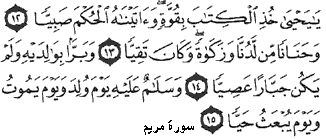 يَـٰيَحۡيَىٰ خُذِ ٱلۡكِتَـٰبَ بِقُوَّةٖۖ وَءَاتَيۡنَـٰهُ ٱلۡحُكۡمَ صَبِيّٗا ١٢
وَحَنَانٗا مِّن لَّدُنَّا وَزَكَوٰةٗۖ وَكَانَ تَقِيّٗا ١٣ وَبَرَّۢا بِوَٰلِدَيۡهِ وَلَمۡ
يَكُن جَبَّارًا عَصِيّٗا ١٤ وَسَلَـٰمٌ عَلَيۡهِ يَوۡمَ وُلِدَ وَيَوۡمَ يَمُوتُ
وَيَوۡمَ يُبۡعَثُ حَيّٗا ١٥
سورة مريم